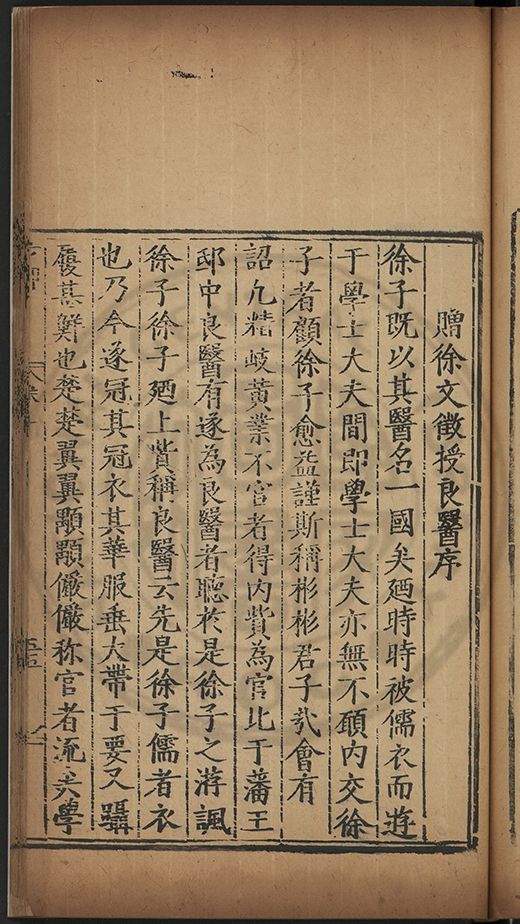 贈徐文徵授良醫序
徐子既以其醫名一國矣廼時時被儒衣而遊
于學士大夫間即學士大夫亦無不願內交徐
子者顧徐子愈益謹斯稱彬彬君子㢤會有
詔凢精岐黃業不官者得內貲為官比于藩王
邸中良醫有遂為良醫者聽於是徐子之游諷
徐子徐子廼上貲稱良醫云先是徐子儒者衣
也乃今遂冠其冠衣其華服垂大帶于要又躡
履甚鮮也楚楚翼翼顒顒儼儼称官者流矣學